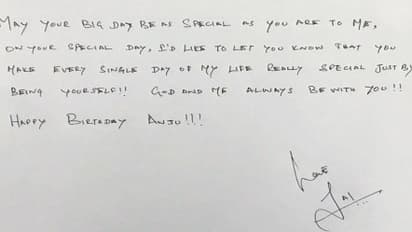 MAY YOUR BIG DAY BE AS SPECIAL AS YOU ARE TO ME,
ON YOUR SPECIAL DAY, I'D LIKE TO LET YOU KNOW THAT YOU
MAKE EVERY SINGLE DAY OF MY LIFE REALLY SPECIAL JUST BY
BEING YOURSELF!! GOD AND ME ALWAYS BE WITH YOU!!
HAPPY BIRTHDAY ANJU!!!
Love
Jai...